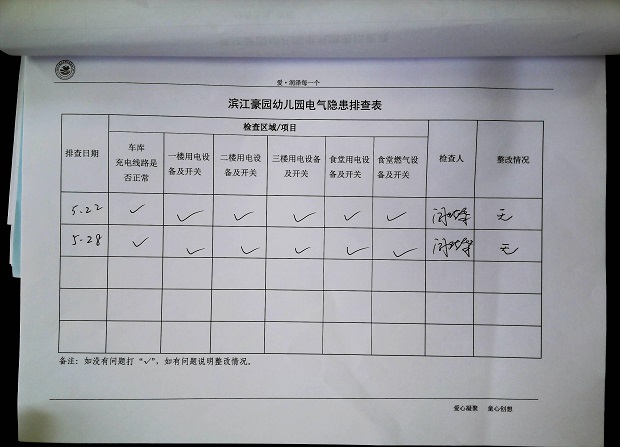 爱·润泽每一个
滨江豪园幼儿园电气隐患排查表
排查日期 检查区域/项目 检查人 整改情况
车库充电线路是否正常 一楼用电设备及开关 二楼用电设备及开关 三楼用电设备及开关 食堂用电设备及开关 食堂燃气设备及开关
5.22 ✓ ✓ ✓ ✓ ✓ ✓ 无
5.28 ✓ ✓ ✓ ✓ ✓ ✓ 无
备注：如没有问题打“✓”，如有问题说明整改情况。
爱心凝聚 童心创想